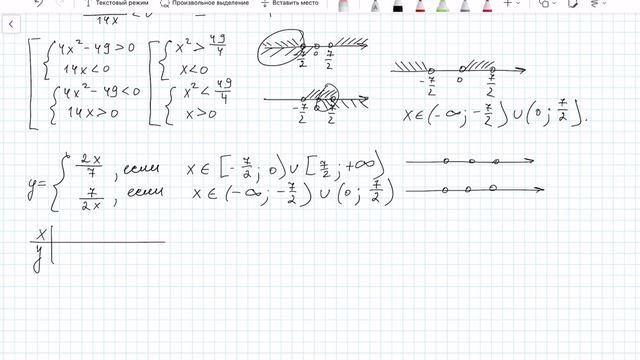 Текстовый режим Произвольное выделение Вставить место
14x < 0
[ { 4x² - 49 > 0 [ { x² > 49/4
14x < 0 x < 0 -7/2 0 7/2
{ 4x² - 49 < 0 { x² < 49/4
14x > 0 x > 0 -7/2 0 7/2
-7/2 0 7/2
x ∈ (-∞; -7/2) ∪ (0; 7/2).
y = { 2x/7, если x ∈ [-7/2; 0) ∪ [7/2; +∞)
7/2x, если x ∈ (-∞; -7/2) ∪ (0; 7/2)
x
y